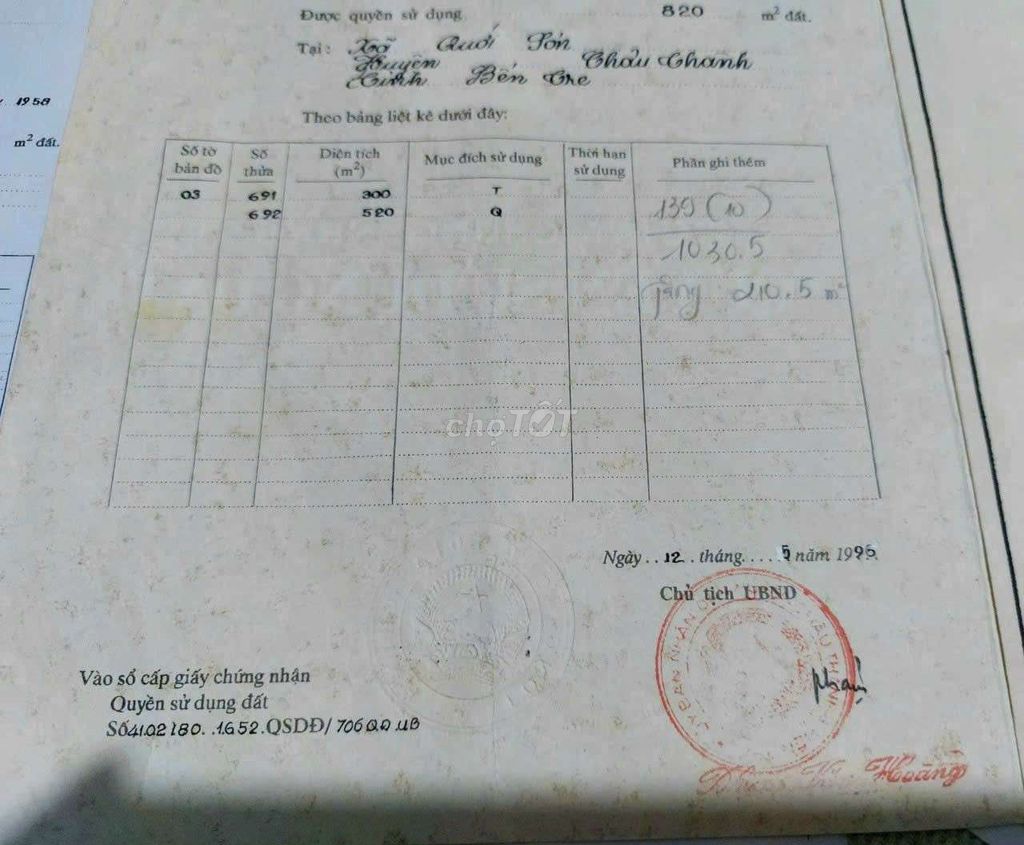 Được quyền sử dụng 820 m² đất.
Tại: Xã Quới Sơn
Huyện Châu Thành
Tỉnh Bến Tre
1958
m² đất.
Theo bảng liệt kê dưới đây:
Số tờ bản đồ Số thửa Diện tích (m²) Mục đích sử dụng Thời hạn sử dụng Phần ghi thêm
03 691 300 T
692 520 Q
139 (10)
1030.5
tăng 210.5 m²
chợTỐT
Ngày..12.tháng....5 năm 1995.
Chủ tịch UBND
Vào sổ cấp giấy chứng nhận
Quyền sử dụng đất
Số 4102180..1652.QSDĐ/706QQ.UB
ỦY BAN NHÂN
Hoàng